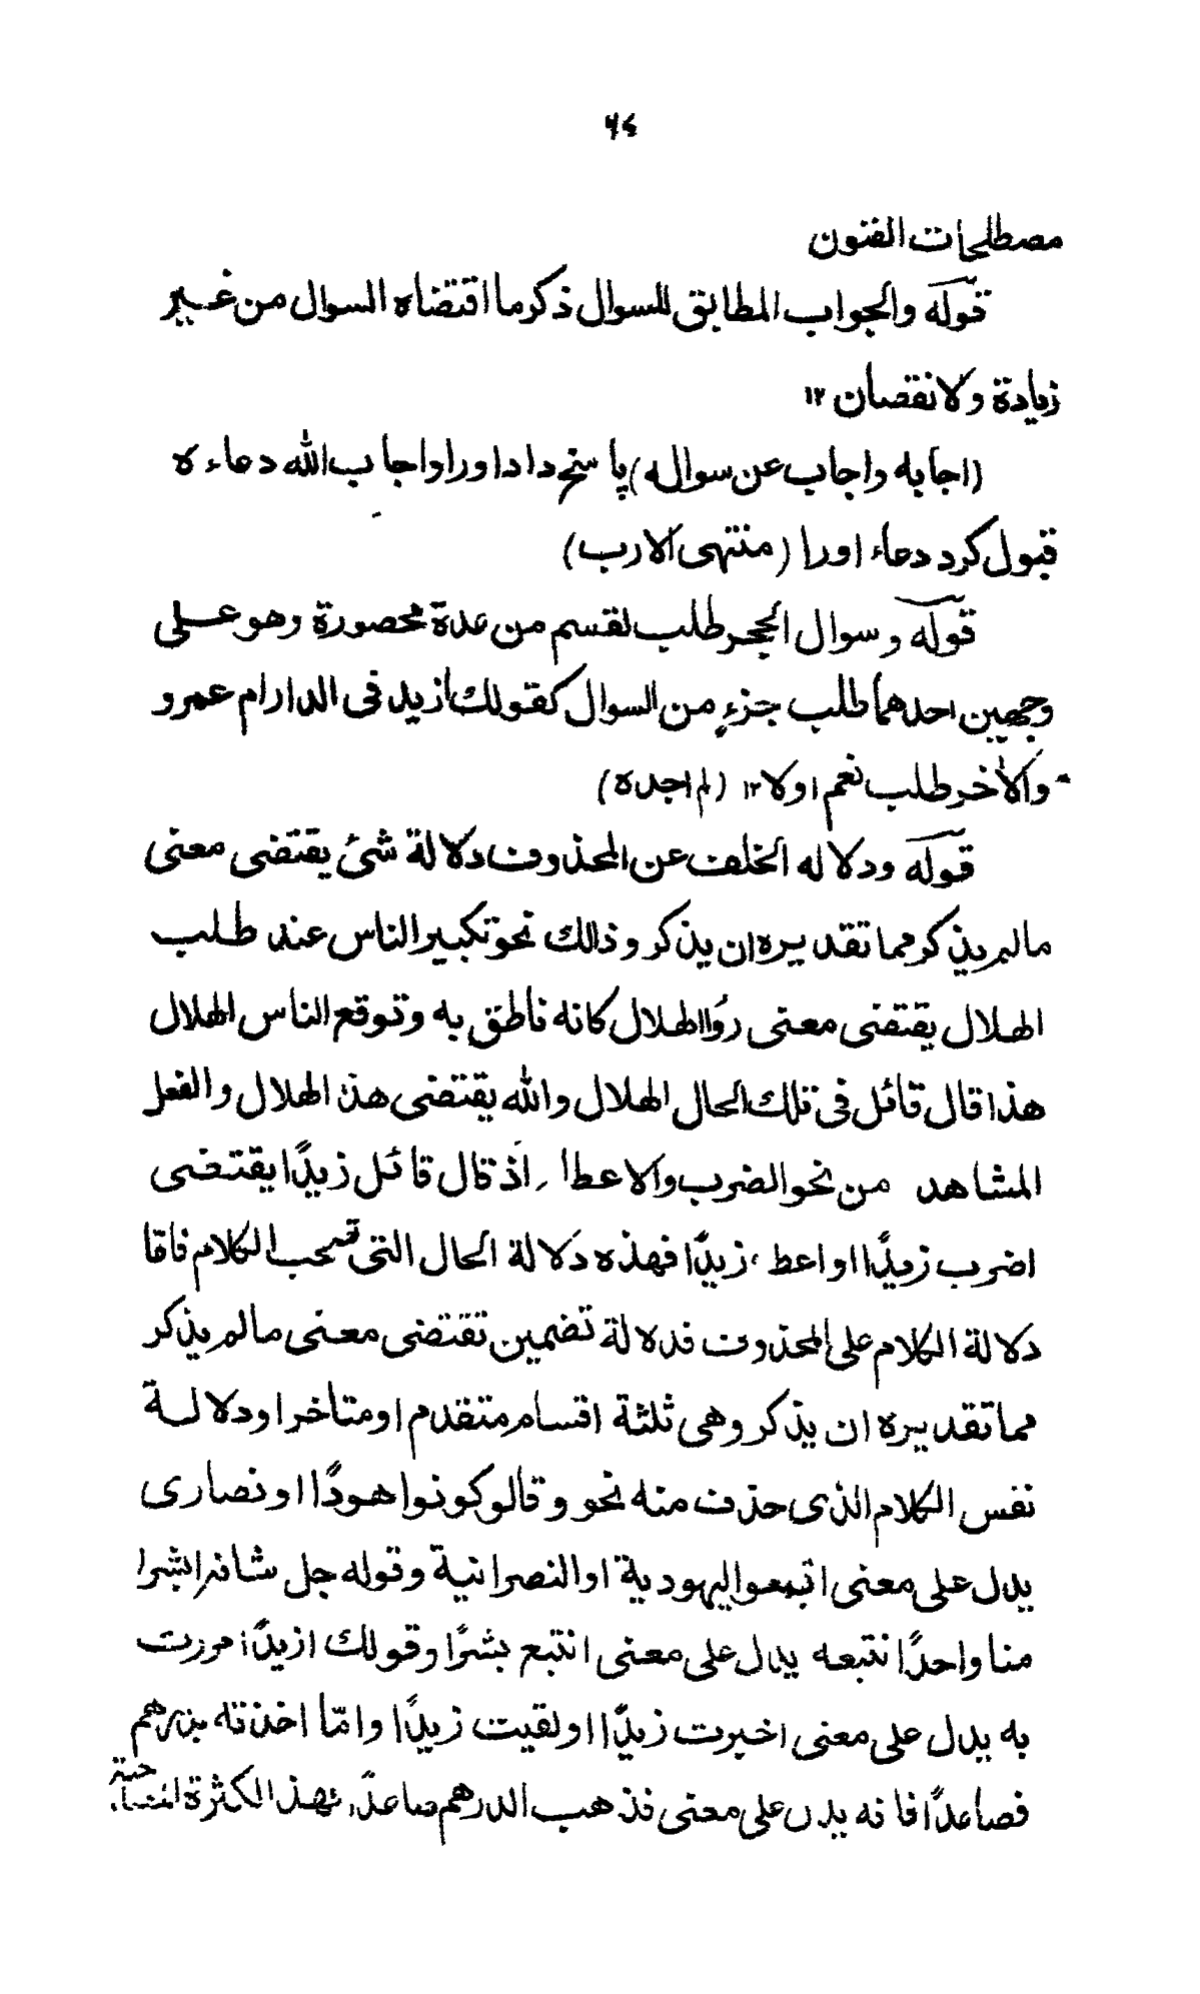 ۶۴
مصطلحات الفنون
قوله والجواب المطابق للسوال ذكر ما اقتضاه السوال من غير
زيادة ولا نقصان ١٢
(اجابه واجاب عن سواله) پاسخ داد اورا واجاب الله دعاءه
قبول كرد دعاء اورا (منتهى الارب)
قوله وسوال الحجر طلب لقسم من عدة محصورة وهو على
وجهين احدهما طلب جزء من السوال كقولك ازيد فى الدار ام عمرو
والأخر طلب نعم اولا ١٢ (لم اجده)
قوله ودلاله الخلف عن المحذوف دلالة شئ يقتضى معنى
مالم يذكر مما تقديره ان يذكر وذالك نحو تكبير الناس عند طلب
الهلال يقتضى معنى رؤا الهلال كانه ناطق به وتوقع الناس الهلال
هذا قال قائل فى تلك الحال الهلال والله يقتضى هذا الهلال والفعل
المشاهد من نحو الضرب والاعطا اذ قال قائل زيدًا يقتضى
اضرب زيدًا او اعط زيدًا فهذه دلالة الحال التى تصحب الكلام فاقا
دلالة الكلام على المحذوف فدلالة تضمين تقتضى معنى مالم يذكر
مما تقديره ان يذكر وهى ثلثة اقسام متقدم او متاخر او دلالة
نفس الكلام الذى حذف منه نحو وقالو كونوا هودًا او نصارى
يدل على معنى اتبعوا اليهودية او النصرانية وقوله جل شانه ابشرا
منا واحدًا نتبعه يدل على معنى انتبع بشرًا وقولك ازيدًا مررت
به يدل على معنى اخبرت زيدًا اولقيت زيدًا وامّا اخذته بدرهم
فصاعدًا فانه يدل على معنى فذهب الدرهم صاعدًا فهذا لكثرة